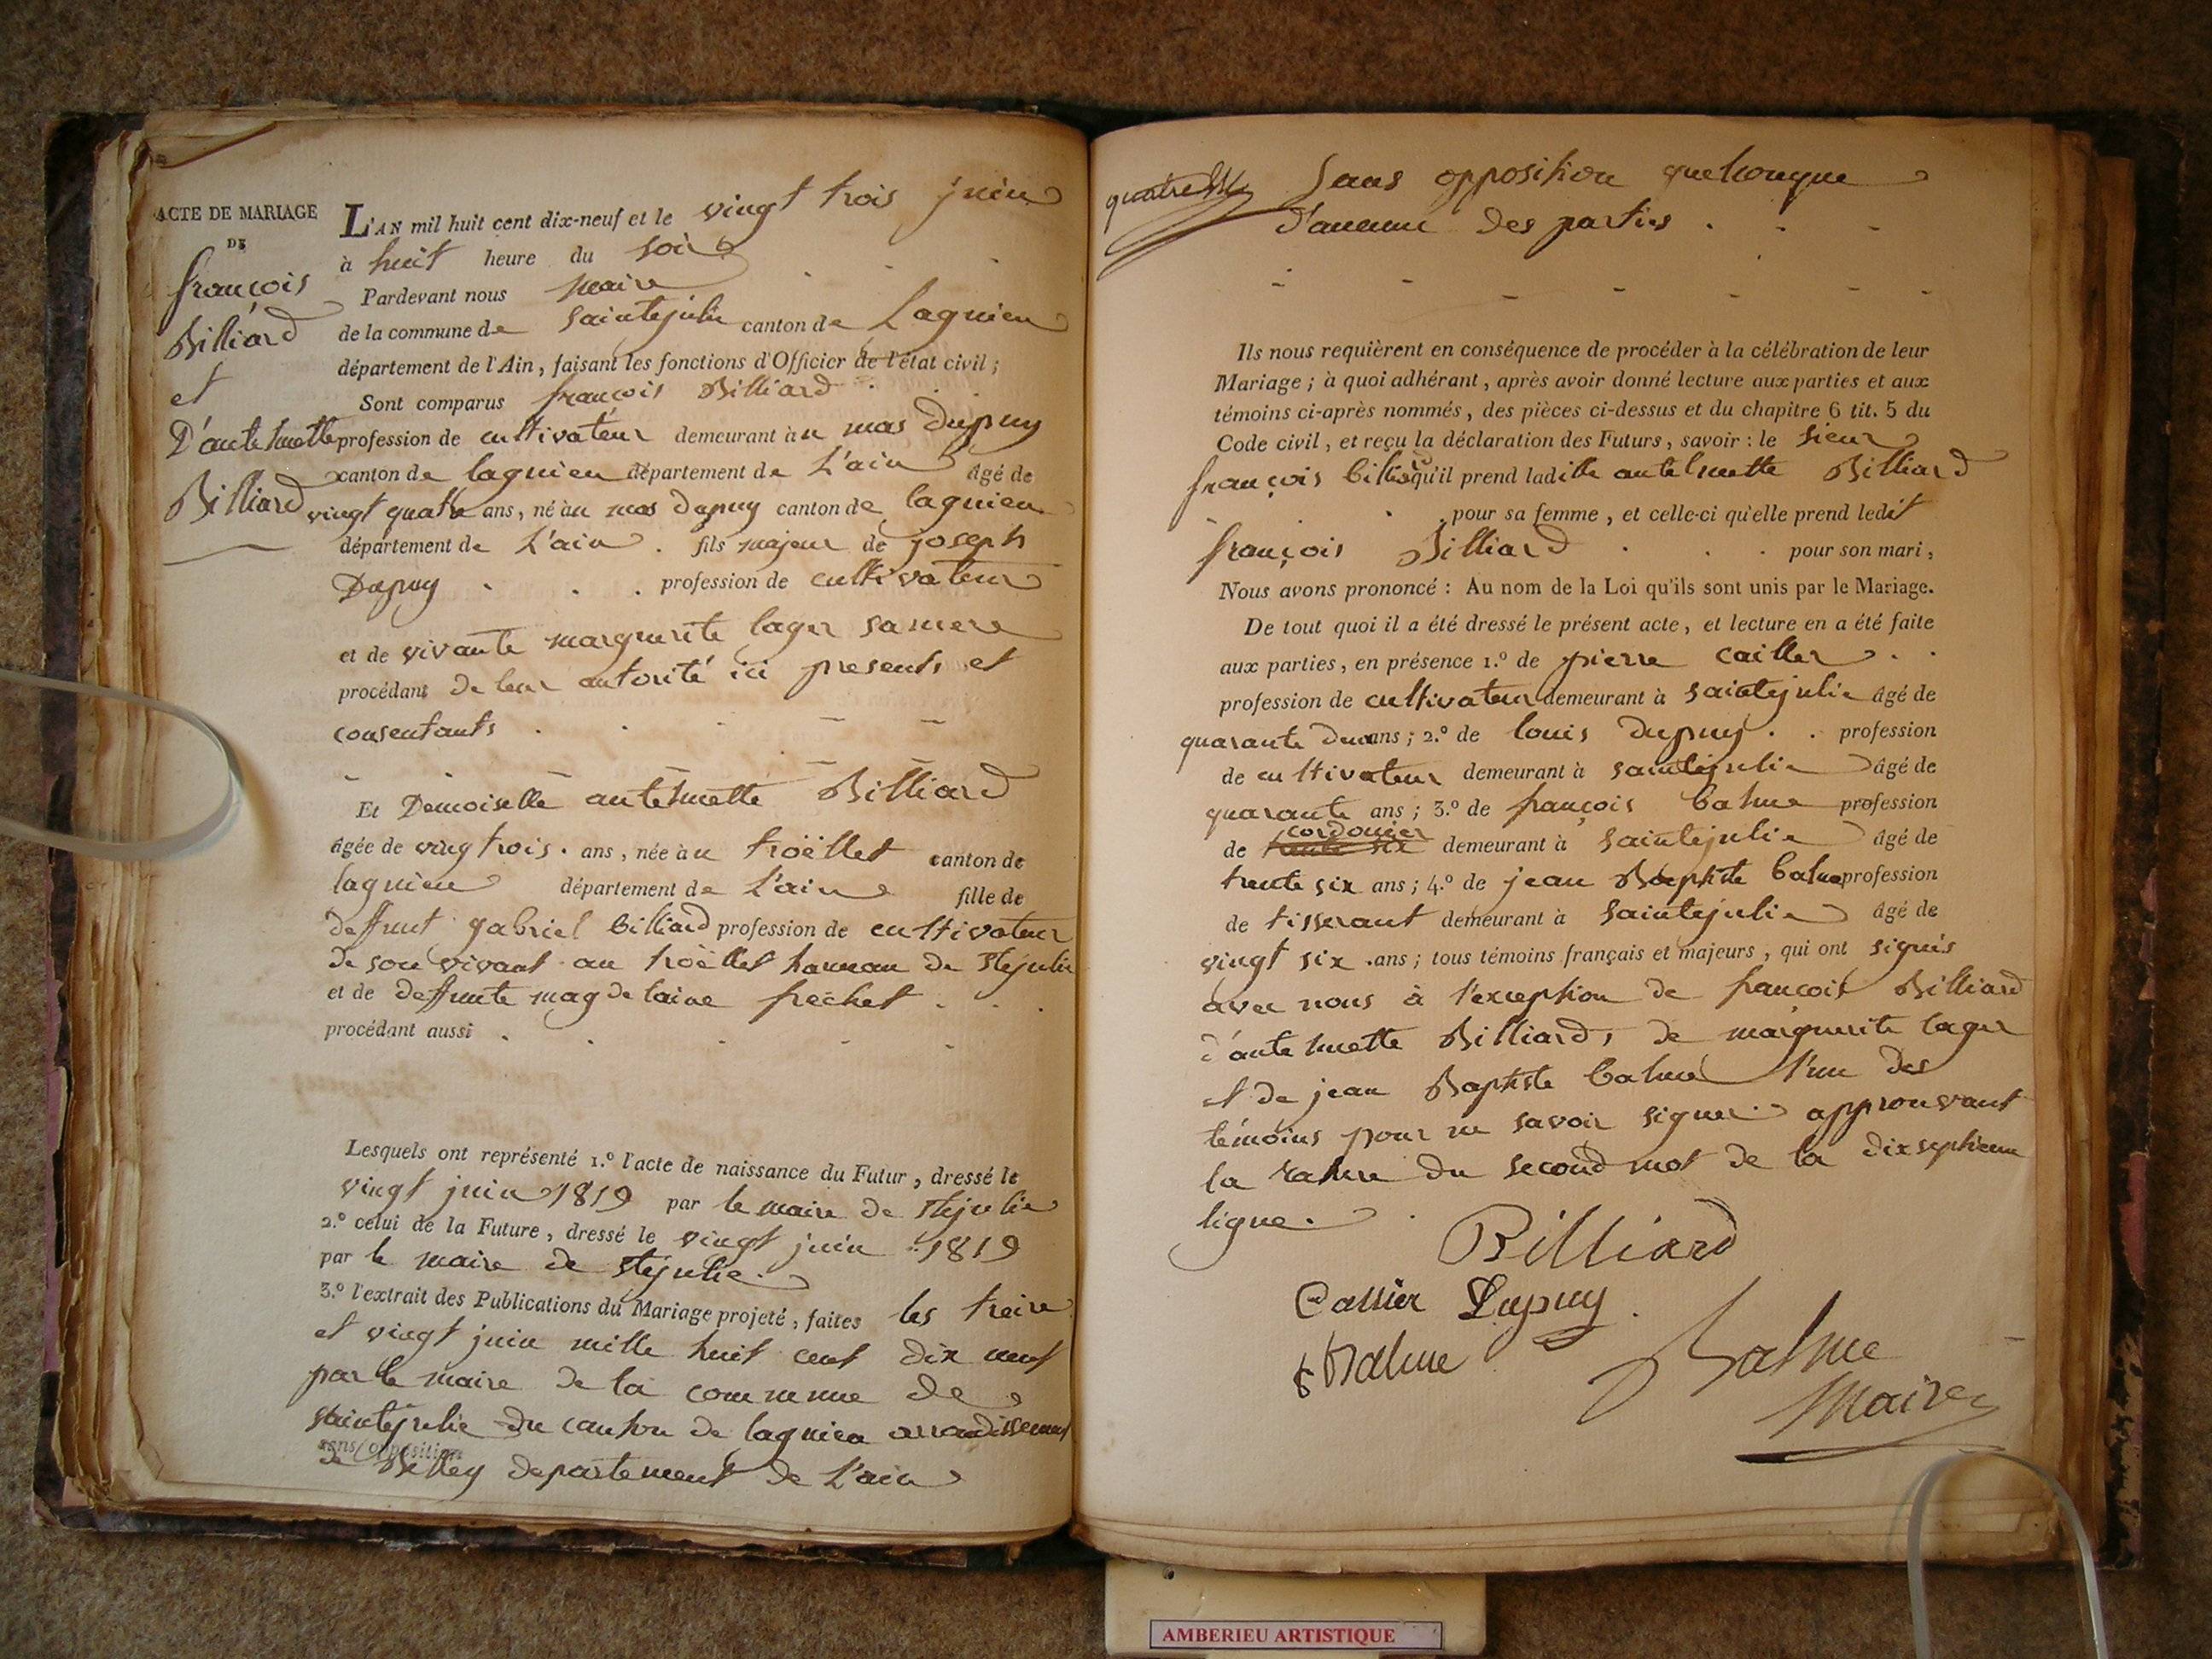 ACTE DE MARIAGE
DE
françois
Billiard
et
D'antelmette
Billiard
L'AN mil huit cent dix-neuf et le vingt trois juin
à huit heure du soir
Pardevant nous maire
de la commune de saintejulie canton de Lagnieu
département de l'Ain, faisant les fonctions d'Officier de l'état civil;
Sont comparus françois Billiard
profession de cultivateur demeurant àu mas Dupuy
canton de lagnieu département de L'ain âgé de
vingt quatre ans, né àu mas Dupuy canton de lagnieu
département de L'ain. fils majeur de joseph
Dupuy profession de cultivateur
et de vivante marguerite lager sa mere
procédant de leur autorité ici presents et
consentants
Et Demoiselle antelmette Billiard
âgée de vingtrois ans, née àu troëllet canton de
lagnieu département de L'ain fille de
deffunt gabriel billiard profession de cultivateur
de son vivant au troëllet hameau de stejulie
et de deffunte magdelaine
procédant aussi
Lesquels ont représenté 1.º l'acte de naissance du Futur, dressé le
vingt juin 1819 par le maire de stejulie
2.º celui de la Future, dressé le vingt juin 1819
par le maire de stejulie.
3.º l'extrait des Publications du Mariage projeté, faites les treize
et vingt juin mille huit cent dix neuf
par le maire de la commune de
saintejulie du canton de lagnieu arrondissement
sans opposition
de Belley departement de L'ain
Sans opposition quelconque
d'aucune des parties.
Ils nous requièrent en conséquence de procéder à la célébration de leur
Mariage; à quoi adhérant, après avoir donné lecture aux parties et aux
témoins ci-après nommés, des pièces ci-dessus et du chapitre 6 tit. 5 du
Code civil, et reçu la déclaration des Futurs, savoir: le sieur
françois billiard qu'il prend laditte antelmette Billiard
pour sa femme, et celle-ci qu'elle prend ledit
françois Billiard pour son mari,
Nous avons prononcé: Au nom de la Loi qu'ils sont unis par le Mariage.
De tout quoi il a été dressé le présent acte, et lecture en a été faite
aux parties, en présence 1.º de pierre cailler
profession de cultivateur demeurant à saintejulie âgé de
quarante deux ans; 2.º de louis dupuy profession
de cultivateur demeurant à saintejulie âgé de
quarante ans; 3.º de françois balme profession
cordonier
de trente six demeurant à saintejulie âgé de
trente six ans; 4.º de jean Baptiste balme profession
de tisserant demeurant à saintejulie âgé de
vingt six ans; tous témoins français et majeurs, qui ont signés
avec nous à l'exception de francois Billiard
d'antelmette Billiard, de marguerite lager
et de jean Baptiste balme l'un des
témoins pour ne savoir signer. approuvant
la rature du second mot de la dixseptieme
ligne.
Billiard
Callier Dupuy
f Balme
Balme
Maire
AMBERIEU ARTISTIQUE